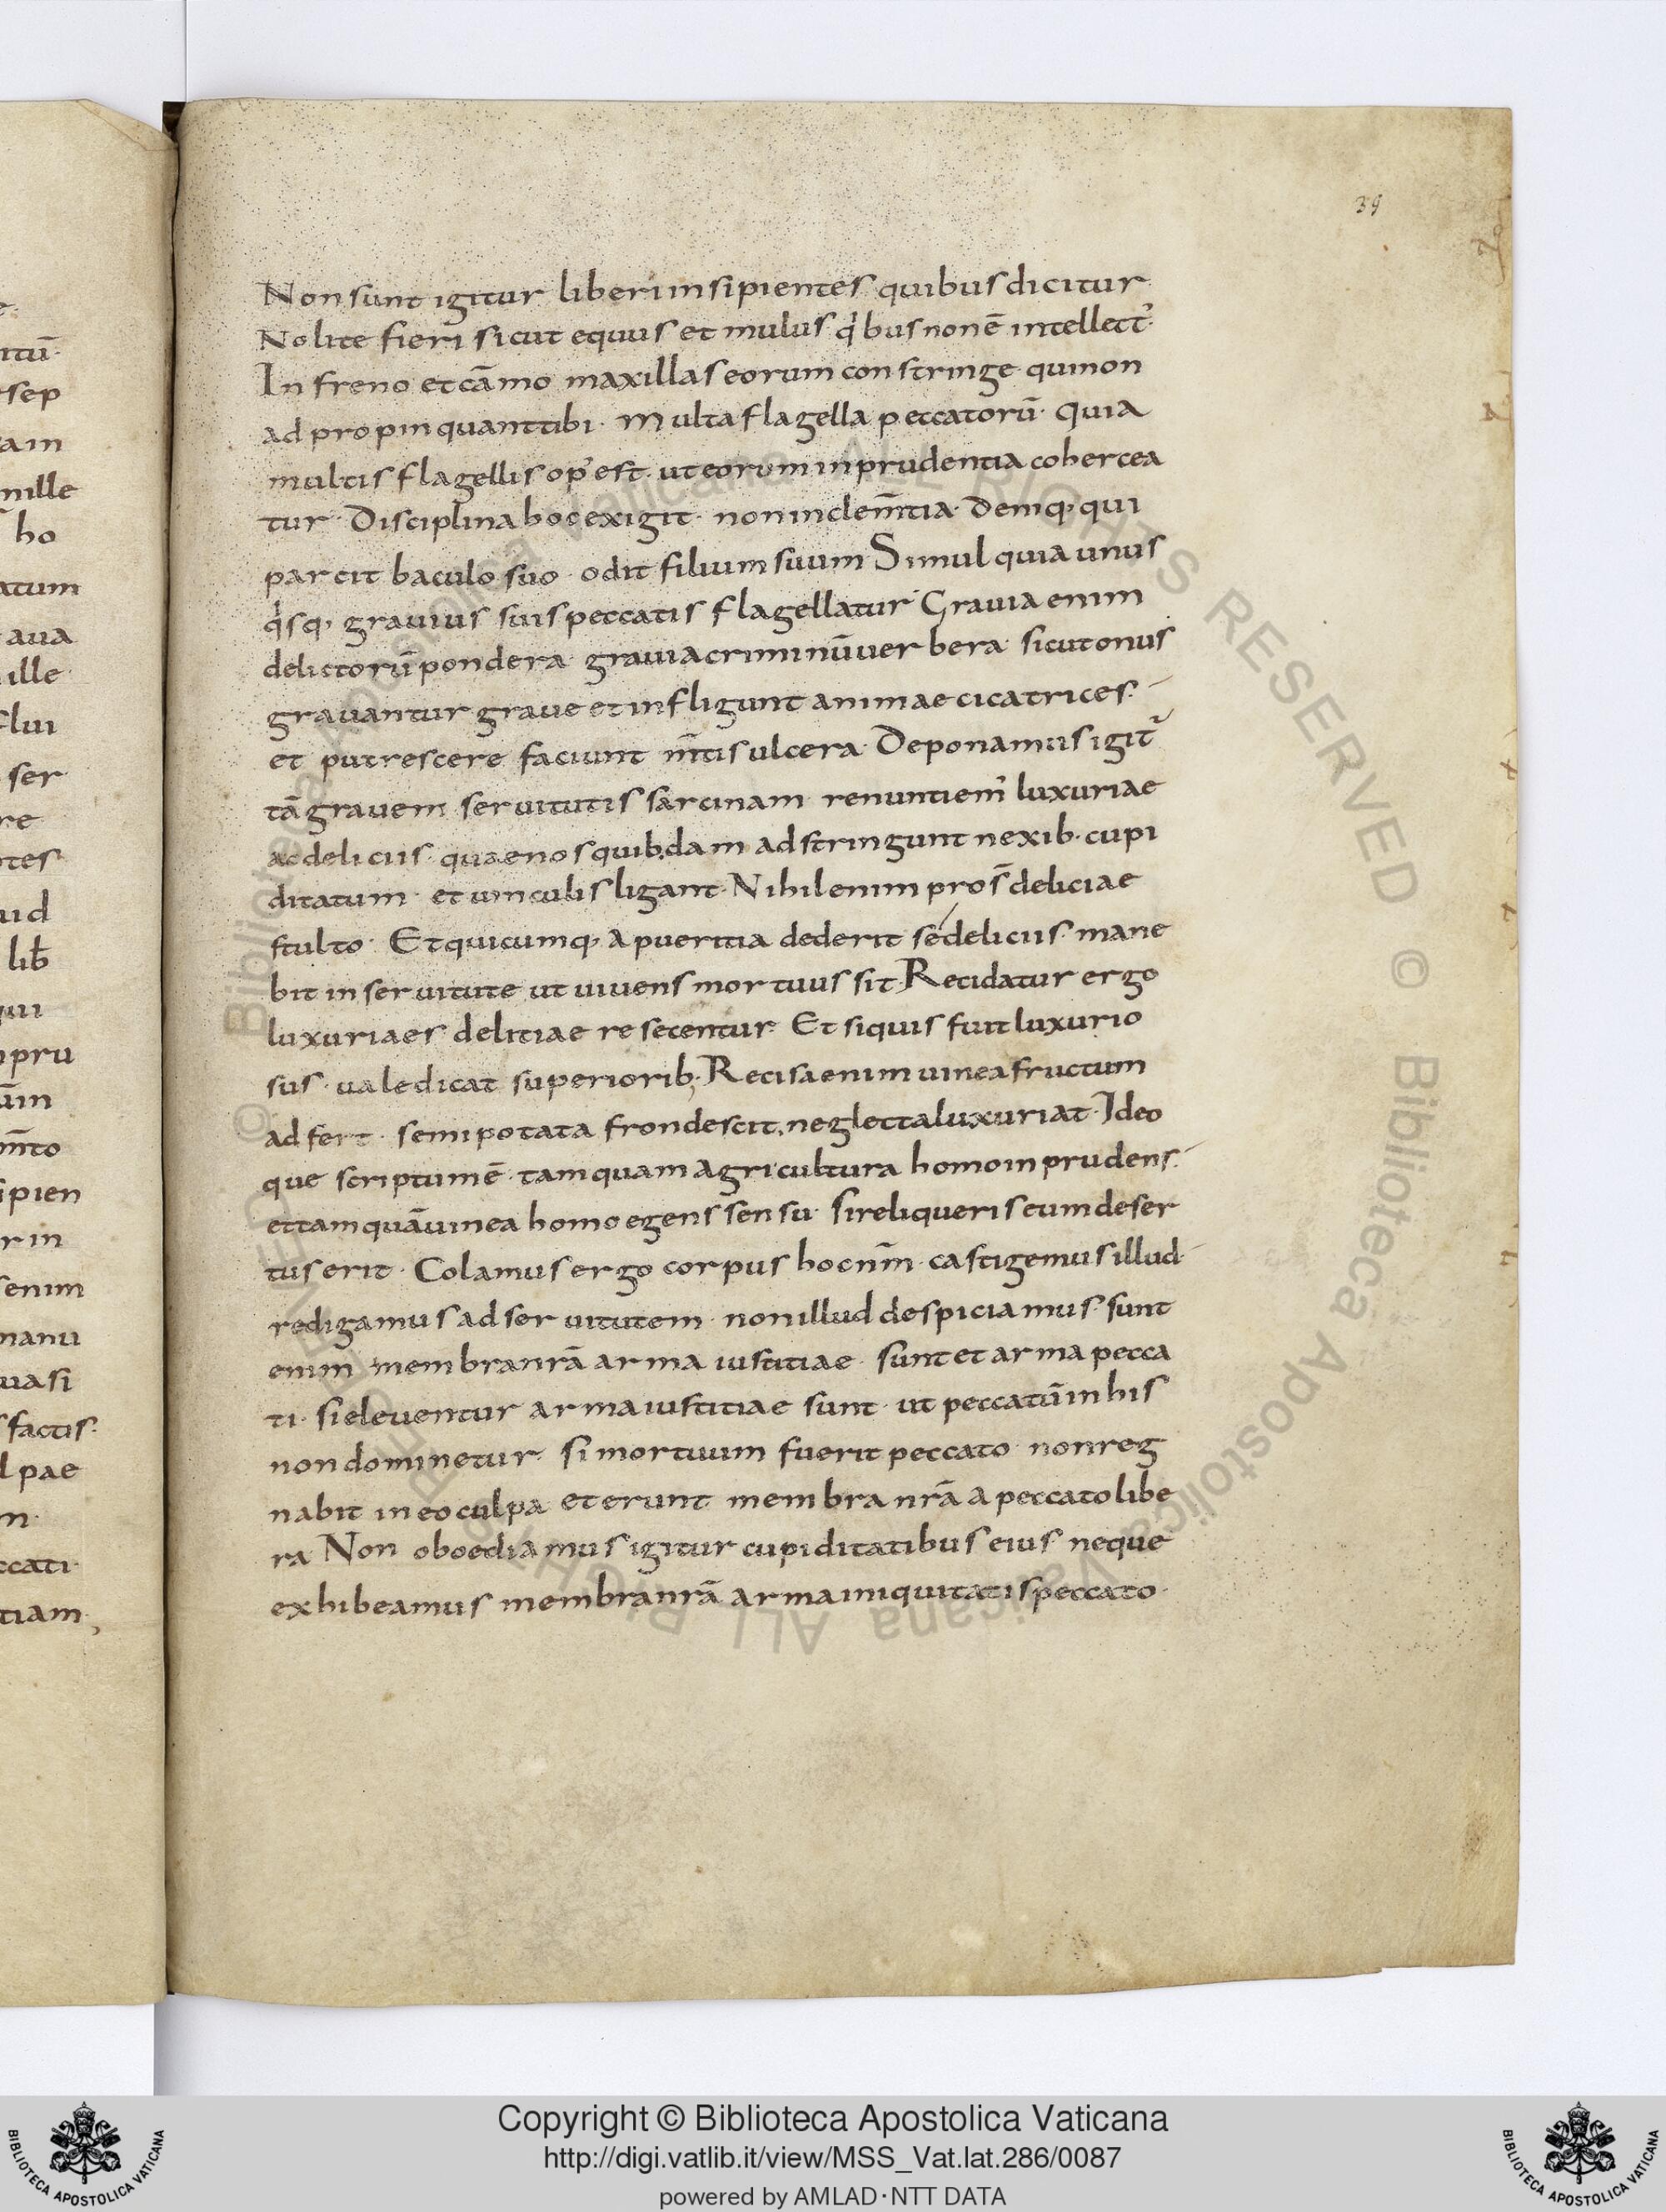 39
Non sunt igitur liberi insipientes quibus dicitur
Nolite fieri sicut equus et mulus qͥbus non ē intellectꝰ·
In freno et cāmo maxillas eorum constringe qui non
adpropinquant tibi· Multa flagella peccatorū· quia
multis flagellis opꝰ est· ut eorum inprudentia cohercea
tur· Disciplina hoc exigit· non inclem̄tia· Deniq; qui
parcit baculo suo· odit filium suum Simul quia unus
qͥsq; grauius suis peccatis flagellatur· Grauia enim
delictorū pondera grauia criminū uerbera· sicut onus
grauantur graue et infligunt animae cicatrices·
et putrescere faciunt m̄tis ulcera· Deponamus igit̄
tā grauem seruitutis sarcinam renuntiemꝰ luxuriae
ac deliciis· quae nos quib;dam adstringunt nexib· cupi
ditatum· et uinculis ligant· Nihil enim pros̄ deliciae
stulto· Et quicumq; a pueritia dederit se deliciis· mane
bit in seruitute ut uiuens mortuus sit· Recidatur ergo
luxuriaes delitiae resecentur· Et siquis fuit luxurio
sus· ualedicat superiorib;· Recisa enim uinea fructum
adfert· semipotata frondescit, neglecta luxuriat· Ideo
que scriptum ē· tamquam agricultura homo inprudens·
et tamquā uinea homo egens sensu· si reliqueris eum deser
tus erit· Colamus ergo corpus hoc nr̄m· castigemus illud·
redigamus ad seruitutem· non illud despiciamus· sunt
enim membra nrā arma iustitiae· sunt et arma pecca
ti· si eleuentur arma iustitiae sunt· ut peccatū in his
non dominetur· si mortuum fuerit peccato· non reg
nabit in eo culpa et erunt membra nrā a peccato libe
ra Non oboediamus igitur cupiditatibus eius neque
exhibeamus membra nrā arma iniquitatis peccato·
Copyright © Biblioteca Apostolica Vaticana
http://digi.vatlib.it/view/MSS_Vat.lat.286/0087
powered by AMLAD·NTT DATA
BIBLIOTECA APOSTOLICA VATICANA
BIBLIOTECA APOSTOLICA VATICANA